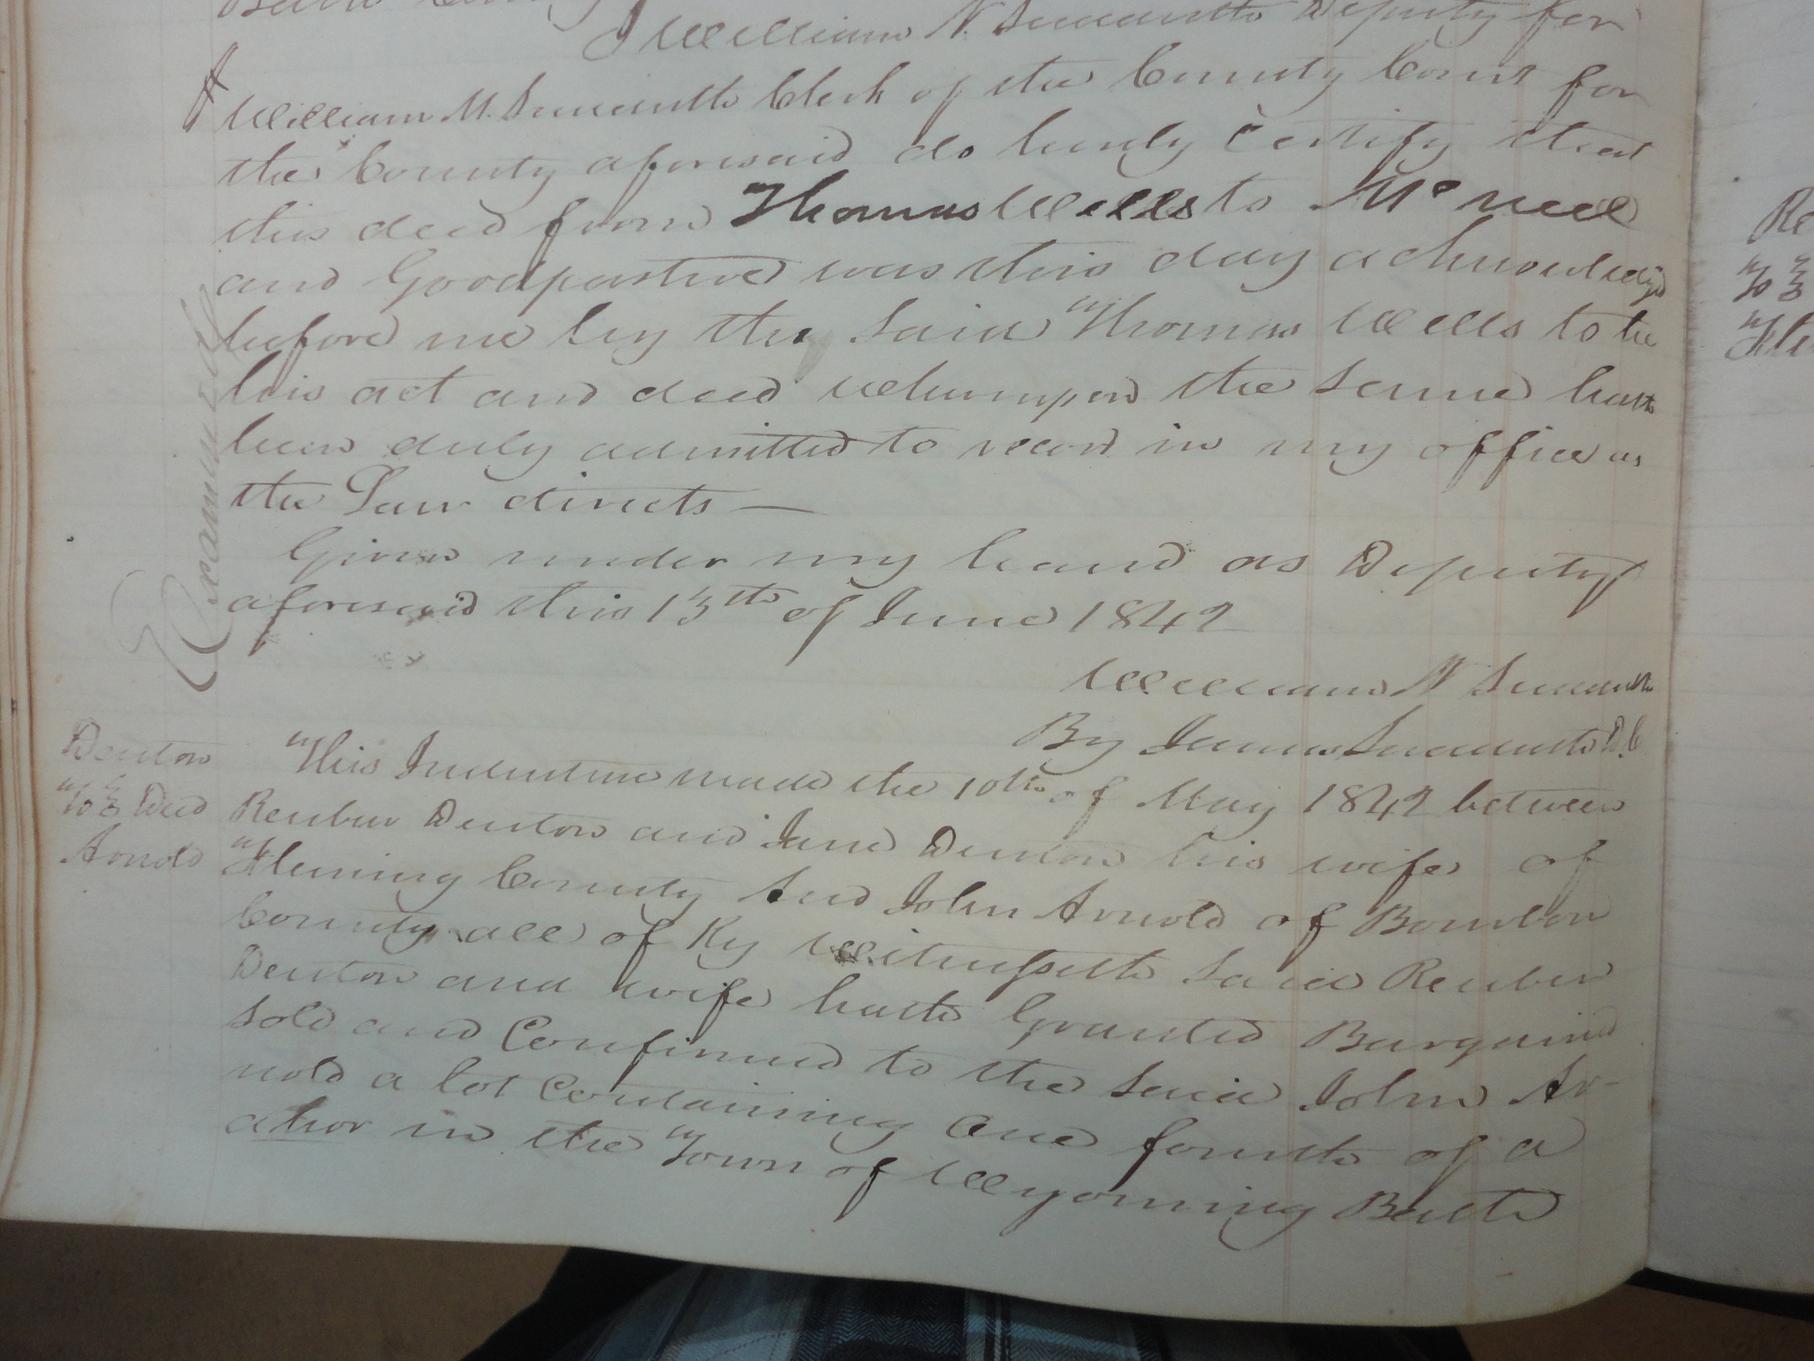 Bath County
I William N. Sudduth Deputy for
William M. Sudduth Clerk of the County Court for
the County aforesaid do herely Certify that
this deed from Thomas Wells to Mc neel
and Goodpasture was this day acknowledged
before me by the Said Thomas Wells to be
his act and deed whereupon the Same hath
been duly admitted to record in my office as
the Law directs —
Given under my hand as Deputy
aforesaid this 13th of June 1842
William M Sudduth
By James Sudduth D.C
Examined
Denton
To } Deed
Arnold
This Indenture made the 10th of May 1842 between
Reuben Denton and Jane Denton his wife of
Fleming County And John Arnold of Bourbon
County all of Ky Witnesseth Said Reuben
Denton and wife hath Granted Bargained
Sold and Confirmed to the Said John Ar-
nold a lot Containing One fourth of a
acher in the Town of Wyoming Bath
Re
To }
Fle